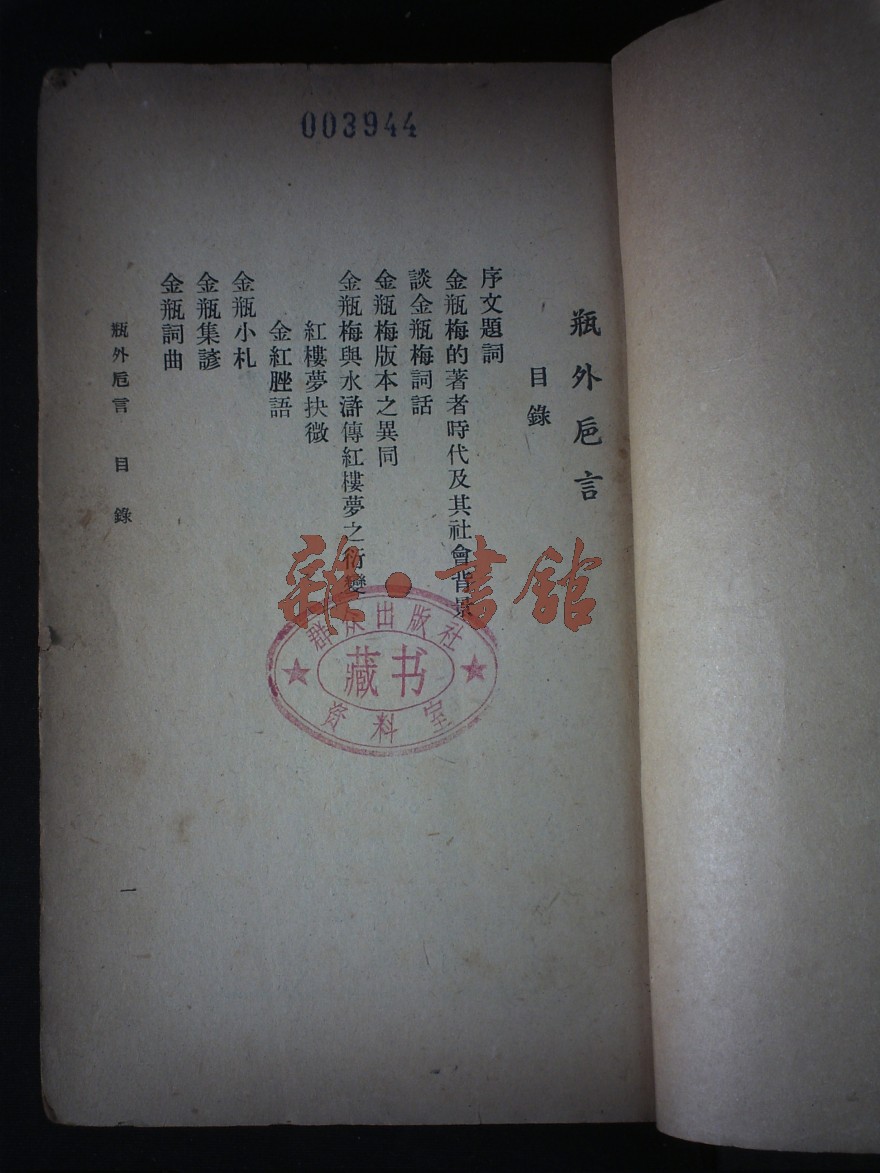 003944
瓶外卮言
目錄
序文題詞
金瓶梅的著者時代及其社會背景
談金瓶梅詞話
金瓶梅版本之異同
金瓶梅與水滸傳紅樓夢之衍變
紅樓夢抉微
金紅脞語
金瓶小札
金瓶集諺
金瓶詞曲
瓶外卮言 目錄
一
雜·書館
群众出版社
藏书
资料室